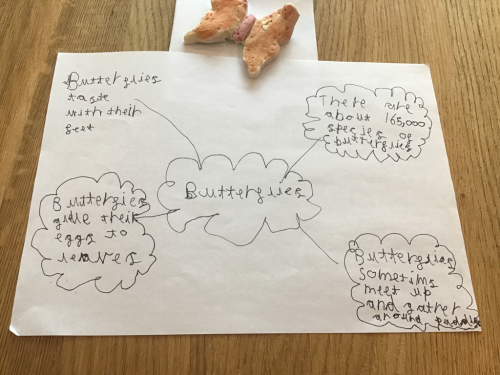 Butterflies
taste
with their
feet
There are
about 165,000
species of
butterflies
Butterflies
Butterflies
glue their
eggs to
leaves
Butterflies
sometims
meet up
and gather
around puddles